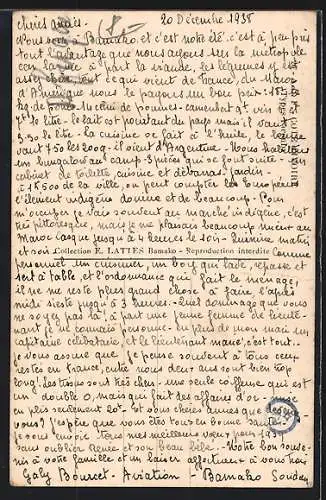 chères amies. 20 Décembre 1938
Nous voici à Bamako et c'est notre été. c'est à peu près
tout l'avantage que nous ayons sur la métropole
car la vie à part la viande, les légumes y est
assez chère tout ce qui vient de France, du Maroc
d'Amérique nous le payons un bon prix. 15
kg de pommes de
7 le litre. le lait est pourtant du pays mais il vaut
3,50 le litre. la cuisine se fait à l'huile, le beurre
vaut 7,50 les 200g. il vient d'Argentine. Nous habitons
un bungalow au camp. 3 pièces qui se font suite. un
cabinet de toilette, cuisine et débarras. Jardin.
à 1.500 de la ville, on peut compter les Européens
l'élément indigène domine et de beaucoup. Pour
m'occuper je vais souvent au marché indigène, c'est
très pittoresque, mais je me plaisais beaucoup mieux au
Maroc casque jusqu'à 4 heures le soir. Quinine matin
et soir Collection E. LATTES Bamako - Reproduction interdite Comme
personnel un cuisinier, un boy qui lave, repasse et
sert à table, et l'ordonnance qui fait le ménage,
il ne me reste plus grand chose à faire l'après
midi sieste jusqu'à 3 heures. Quel dommage que vous
ne soyez pas là, à part une jeune femme de lieute-
nant je ne connais personne. en plus de mon mari un
capitaine célibataire, et le lieutenant marié, c'est tout.
je vous assure que je pense souvent à tous ceux
restés en France, cette nous deux ans sont bien trop
longs. les tissus sont très chers. une seule coiffeuse qui est
un double 0, mais qui fait des affaires d'or. mise
en plis seulement 20f. Et vous chères amies que devenez
vous? J'espère que vous êtes tous en bonne santé.
je vous envoie tous mes meilleurs voeux pour 1939
sans oublier Aimée et son beau fille. Votre bon souve-
nir à votre famille et un baiser affectueux à vous trois
Gaby Bourcet. Aviation. Bamako Soudan